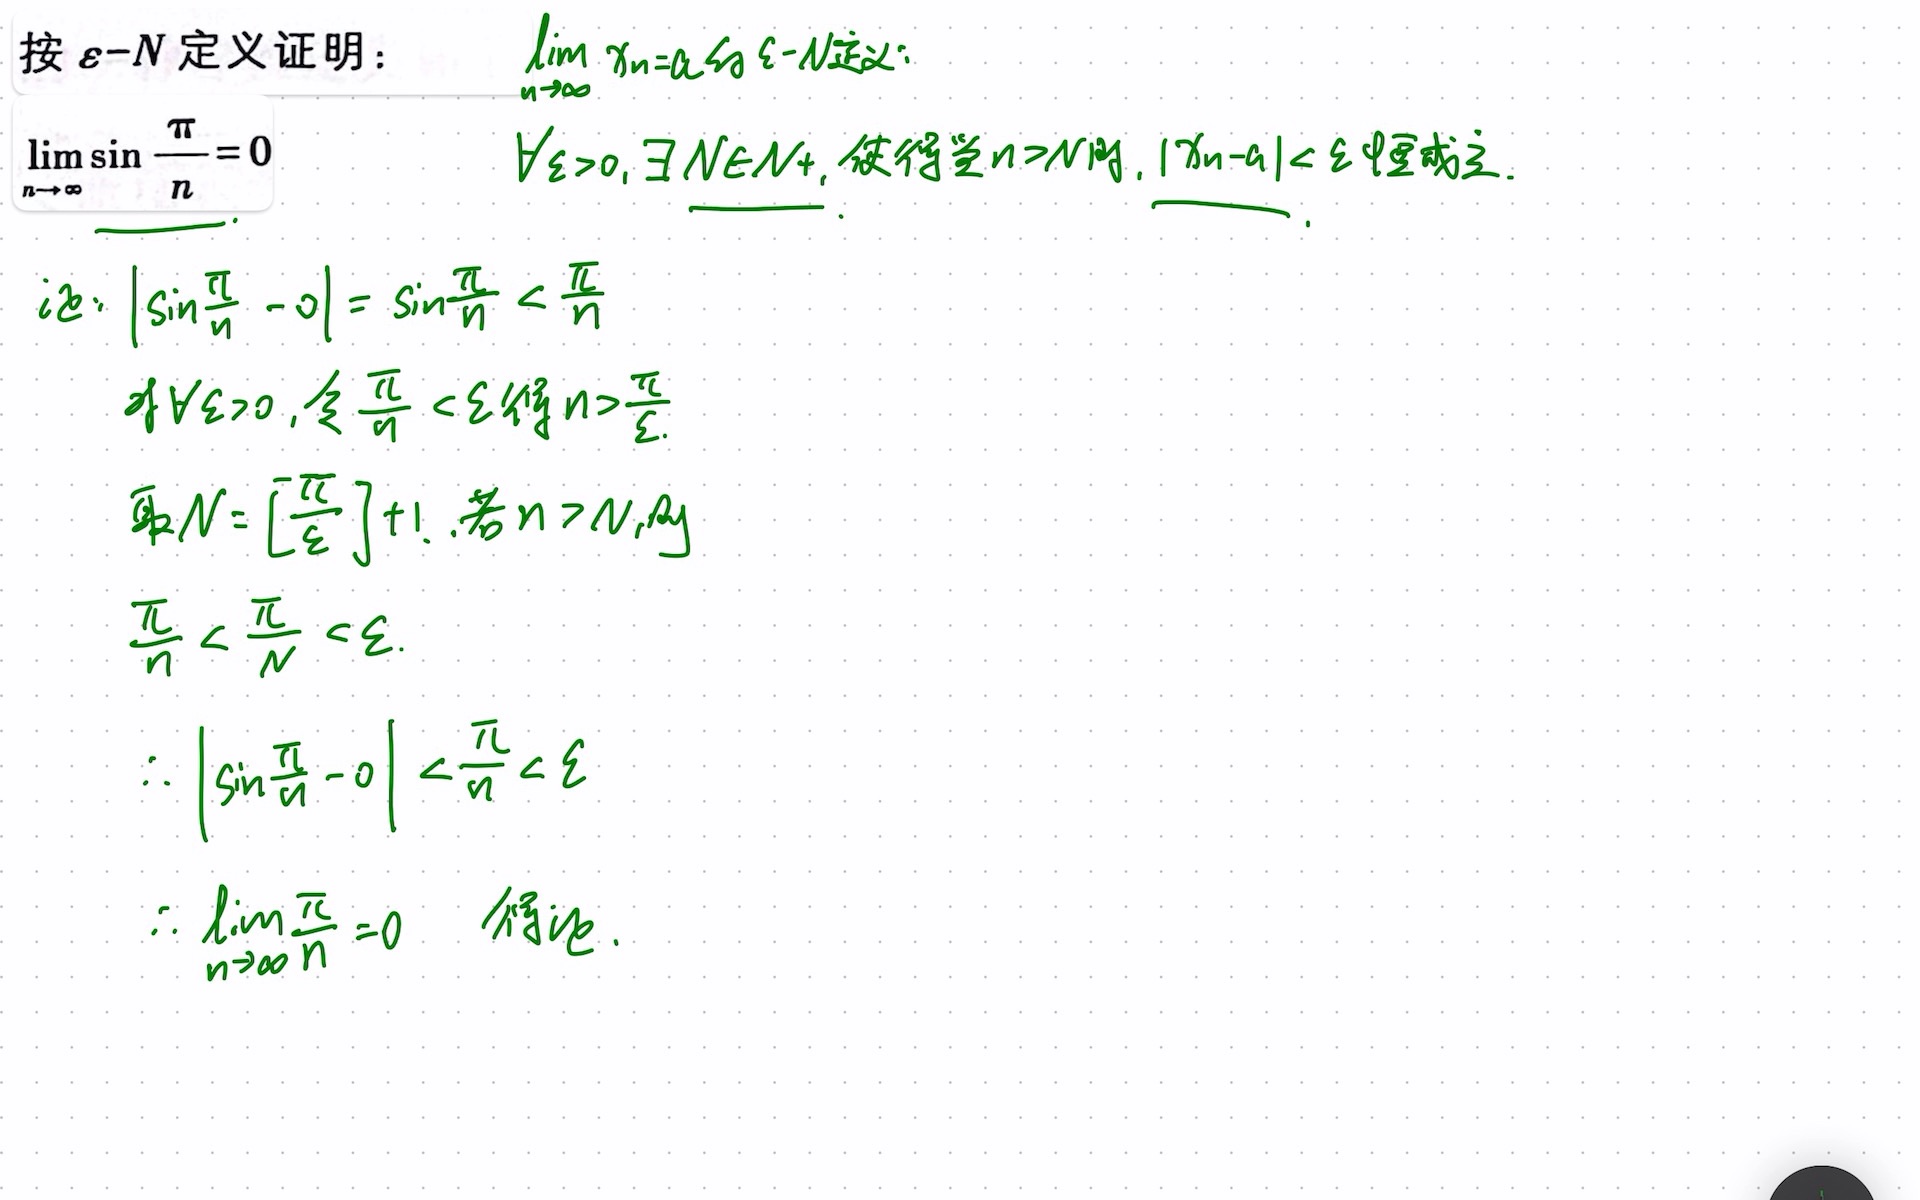 按 ε-N 定义证明:
lim n→∞ sin π/n = 0
lim n→∞ xn=a 的 ε-N定义:
∀ε>0, ∃N∈N+, 使得当n>N时, |xn-a|<ε恒成立.
证: |sin π/n - 0| = sin π/n < π/n
对∀ε>0, 令 π/n < ε 得 n > π/ε.
取N=[π/ε]+1. 若n>N, 则
π/n < π/N < ε.
∴ |sin π/n - 0| < π/n < ε
∴ lim n→∞ π/n = 0 得证.